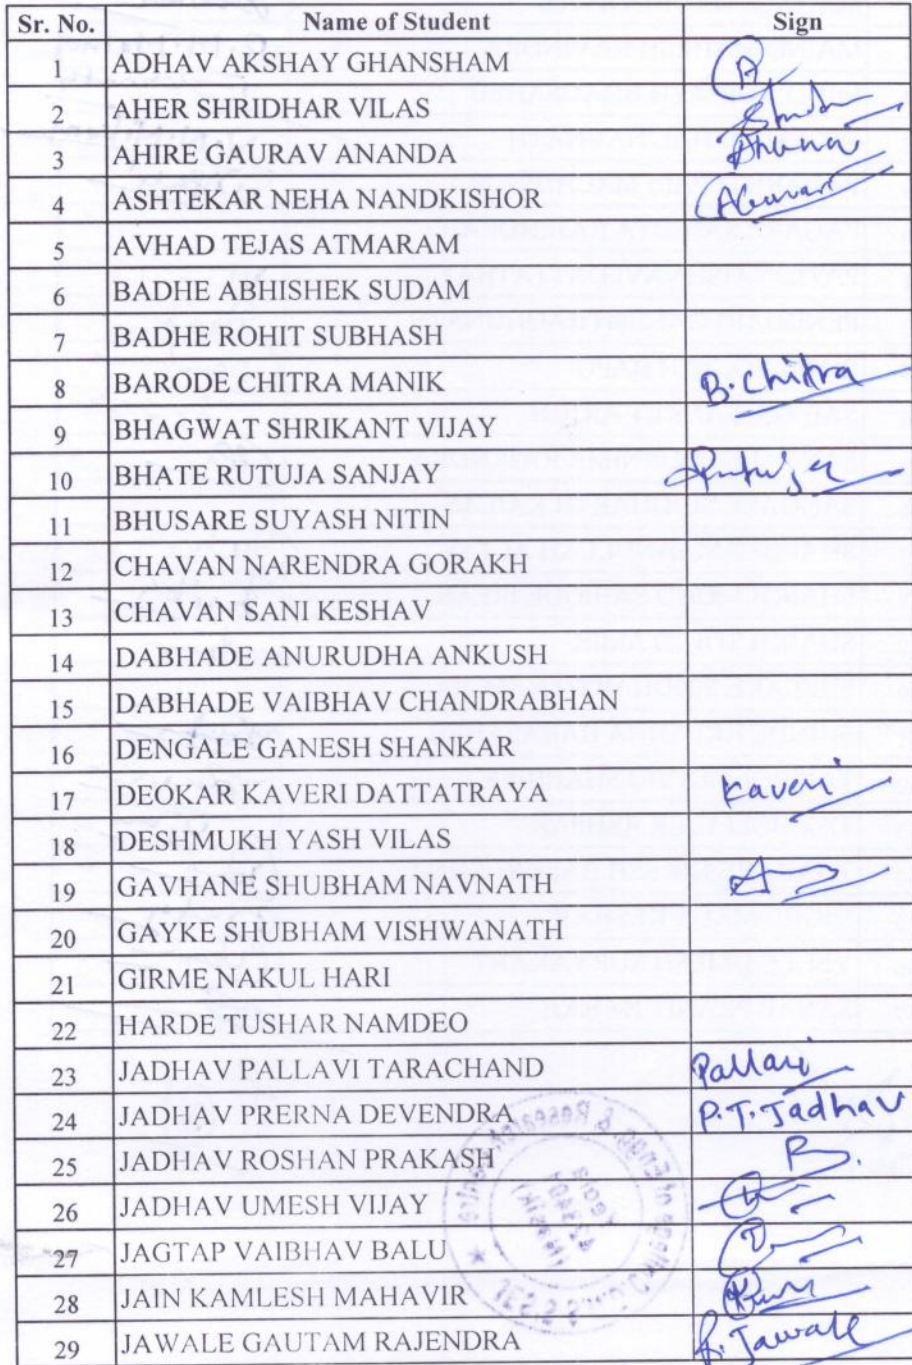 Sr. No. Name of Student Sign
1 ADHAV AKSHAY GHANSHAM A
2 AHER SHRIDHAR VILAS
3 AHIRE GAURAV ANANDA
4 ASHTEKAR NEHA NANDKISHOR
5 AVHAD TEJAS ATMARAM
6 BADHE ABHISHEK SUDAM
7 BADHE ROHIT SUBHASH
8 BARODE CHITRA MANIK B. Chitra
9 BHAGWAT SHRIKANT VIJAY
10 BHATE RUTUJA SANJAY Rutuja
11 BHUSARE SUYASH NITIN
12 CHAVAN NARENDRA GORAKH
13 CHAVAN SANI KESHAV
14 DABHADE ANURUDHA ANKUSH
15 DABHADE VAIBHAV CHANDRABHAN
16 DENGALE GANESH SHANKAR
17 DEOKAR KAVERI DATTATRAYA Kaveri
18 DESHMUKH YASH VILAS
19 GAVHANE SHUBHAM NAVNATH
20 GAYKE SHUBHAM VISHWANATH
21 GIRME NAKUL HARI
22 HARDE TUSHAR NAMDEO
23 JADHAV PALLAVI TARACHAND Pallavi
24 JADHAV PRERNA DEVENDRA P.T. Jadhav
25 JADHAV ROSHAN PRAKASH
26 JADHAV UMESH VIJAY
27 JAGTAP VAIBHAV BALU
28 JAIN KAMLESH MAHAVIR
29 JAWALE GAUTAM RAJENDRA Jawale